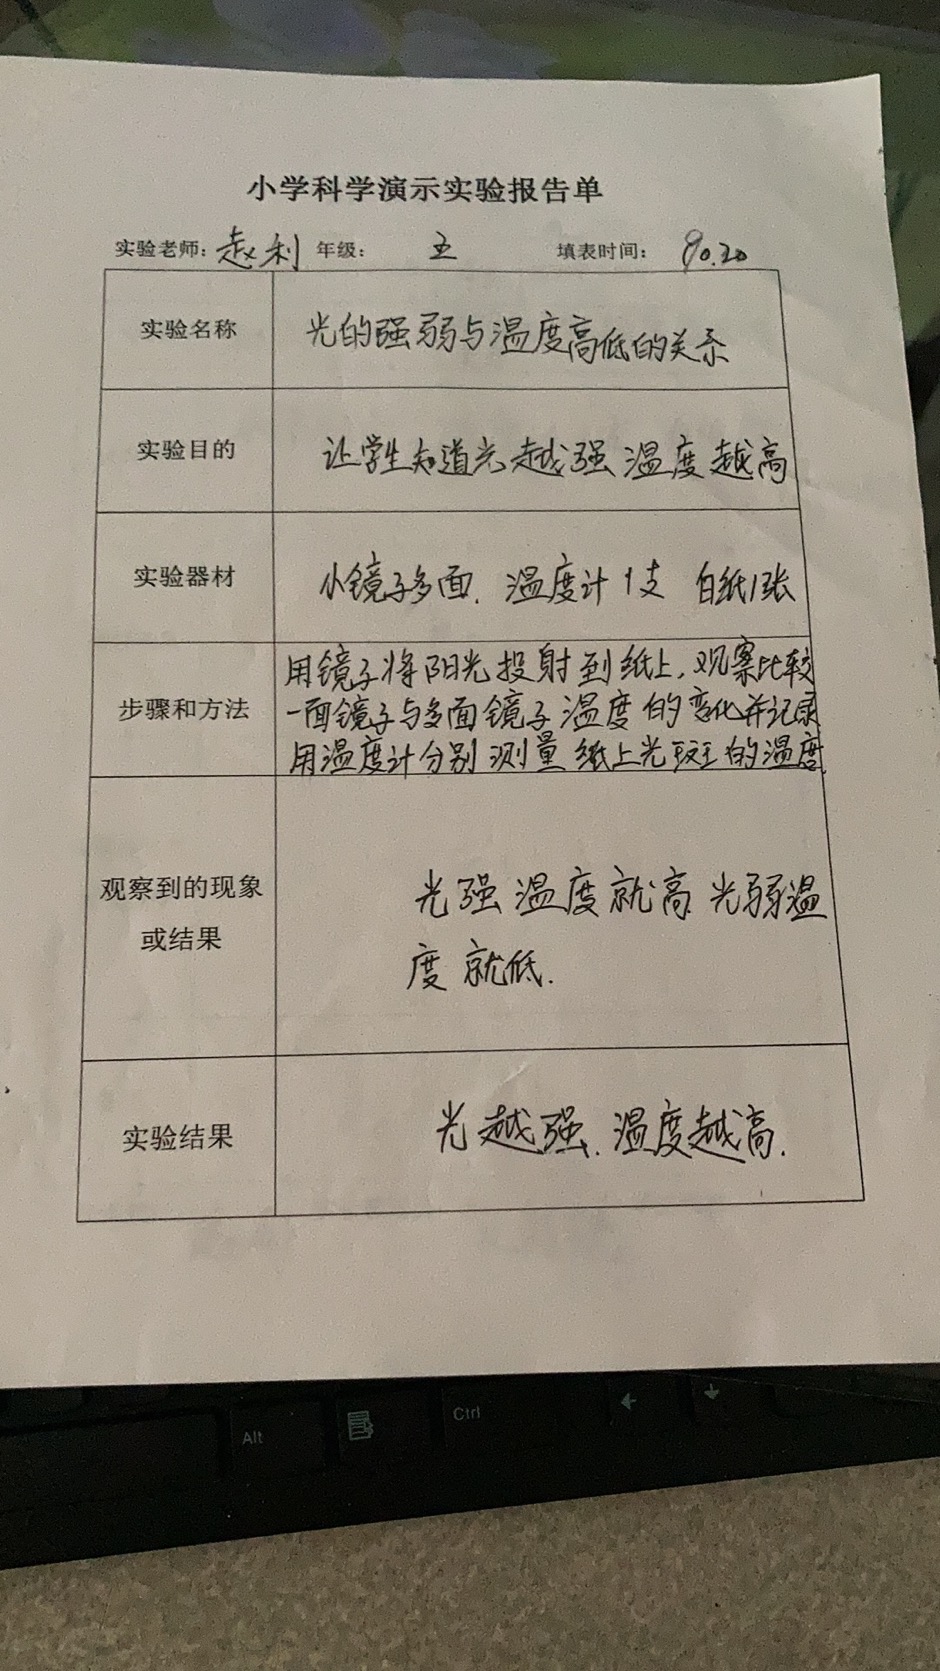 小学科学演示实验报告单
实验老师：赵利 年级： 五 填表时间：
实验名称 光的强弱与温度高低的关系
实验目的 让学生知道光越强温度越高
实验器材 小镜子多面. 温度计1支 白纸1张
步骤和方法
用镜子将阳光投射到纸上, 观察比较
一面镜子与多面镜子温度的变化并记录
用温度计分别测量纸上光斑的温度.
观察到的现象
或结果
光强温度就高 光弱温
度就低.
实验结果 光越强. 温度越高.
Alt
Ctrl